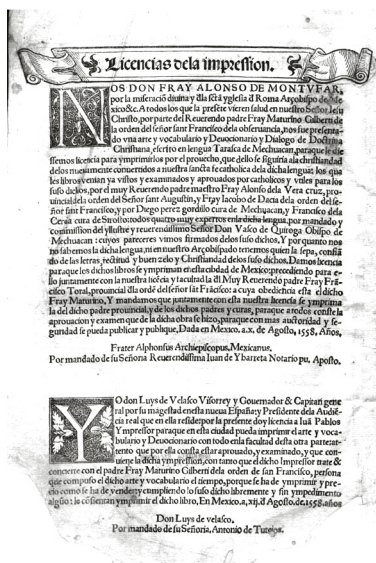 Licencias dela impression.
NOS DON FRAY ALONSO DE MONTVFAR,
por la miseració diuina y dla sctã yglesia d Roma Arçobispo de Me
xico&c. A todos los que la presẽte vieren salud en nuestro Señor Jesu
Christo, por parte del Reuerendo padre Fray Maturino Gilberti de
la orden del señor sant Francisco dela obseruancia, nos fue presenta
do vna arte y vocabulario y Deuocionario y Dialogo de Doctrina
Christiana, escrito en lengua Tarasca de Mechuacan, paraque le die
ssemos licencia para ymprimirlos por el prouecho, que dello se siguiria ala christiandad
delos nueuamente conuertidos a nuestra sancta fe catholica dela dicha lengua: los qua
les libros venian ya vistos y examinados y aprouados por catholicos y vtiles para los
suso dichos, por el muy Reuerendo padre maestro Fray Alonso dela Vera cruz, pro
uincial dela orden del Señor sant Augustin, y Fray Iacobo de Dacia dela orden del se
ñor sant Francisco, y por Diego perez gordillo cura de Mechuacan, y Francisco dela
Cerda cura de todos quatro muy expertos enla dicha lengua, por mandado y
commission del yllustre y reuerendissimo Señor Don Vasco de Quiroga Obispo de
Mechuacan: cuyos pareceres vimos firmados delos suso dichos, Y por quanto nos
no sabemos la dicha lengua, ni en nuestro Arçobispado tenemos quien la sepa, confiã
do de las letras, rectitud y buen zelo y Christiandad delos suso dichos, Damos licencia
paraque los dichos libros se ymprimã en esta cibdad de Mexico: precediendo para e
llo juntamente con la nuestra licẽcia y facultad la dl Muy Reuerendo padre Fray Frã
cisco Toral, prouincial dla ordẽ del señor sãt Francisco: a cuya obediẽcia esta el dicho
Fray Maturino, Y mandamos que juntamente con esta nuestra licencia se ymprima
la del dicho padre prouincial, y de los dichos padres y curas, paraque a todos conste la
aprouacion y examen que de la dicha obra se hizo, paraque con mas auctoridad y se-
guridad se pueda publicar y publique, Dada en Mexico. a.x. de Agosto, 1558, Años,
Frater Alphonsus Archiepiscopus, Mexicanus.
Por mandado de su Señoria Reuerendissima Iuan de Ybarreta Notario pu, Aposto.
YO don Luys de Velasco Visorrey y Gouernador & Capitan gene
ral por su magestad en esta nueua España: y Presidente dela Audiẽ
cia real que en ella reside: por la presente doy licencia a Iuã Pablos
Ympressor paraque en esta ciudad pueda imprimir el arte y voca-
bulario y Deuocionario con todo enla facultad desta otra parte: atẽ-
tento que por ella consta estar aprouado, y examinado, y que con-
uiene la dicha ympressiõ, con tanto que el dicho Impressor trate &
concierte con el padre Fray Maturino Gilberti dela orden de san Francisco, persona
que compuso el dicho arte y vocabulario el tiempo, porque se ha de ymprimir y pre-
cio como se ha de vender: y cumpliendo lo suso dicho libremente y sin ympedimento
algũo: la cõsientan ymprimir el dicho libro, En Mexico, a,xij.đ Agosto.đ.1558.años
Don Luys de velasco.
Por mandado de su Señoria, Antonio de